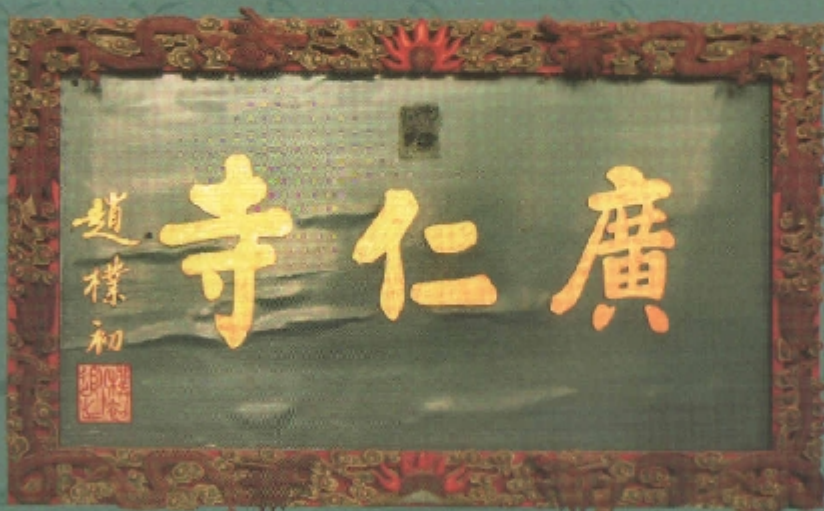 廣仁寺
趙樸初